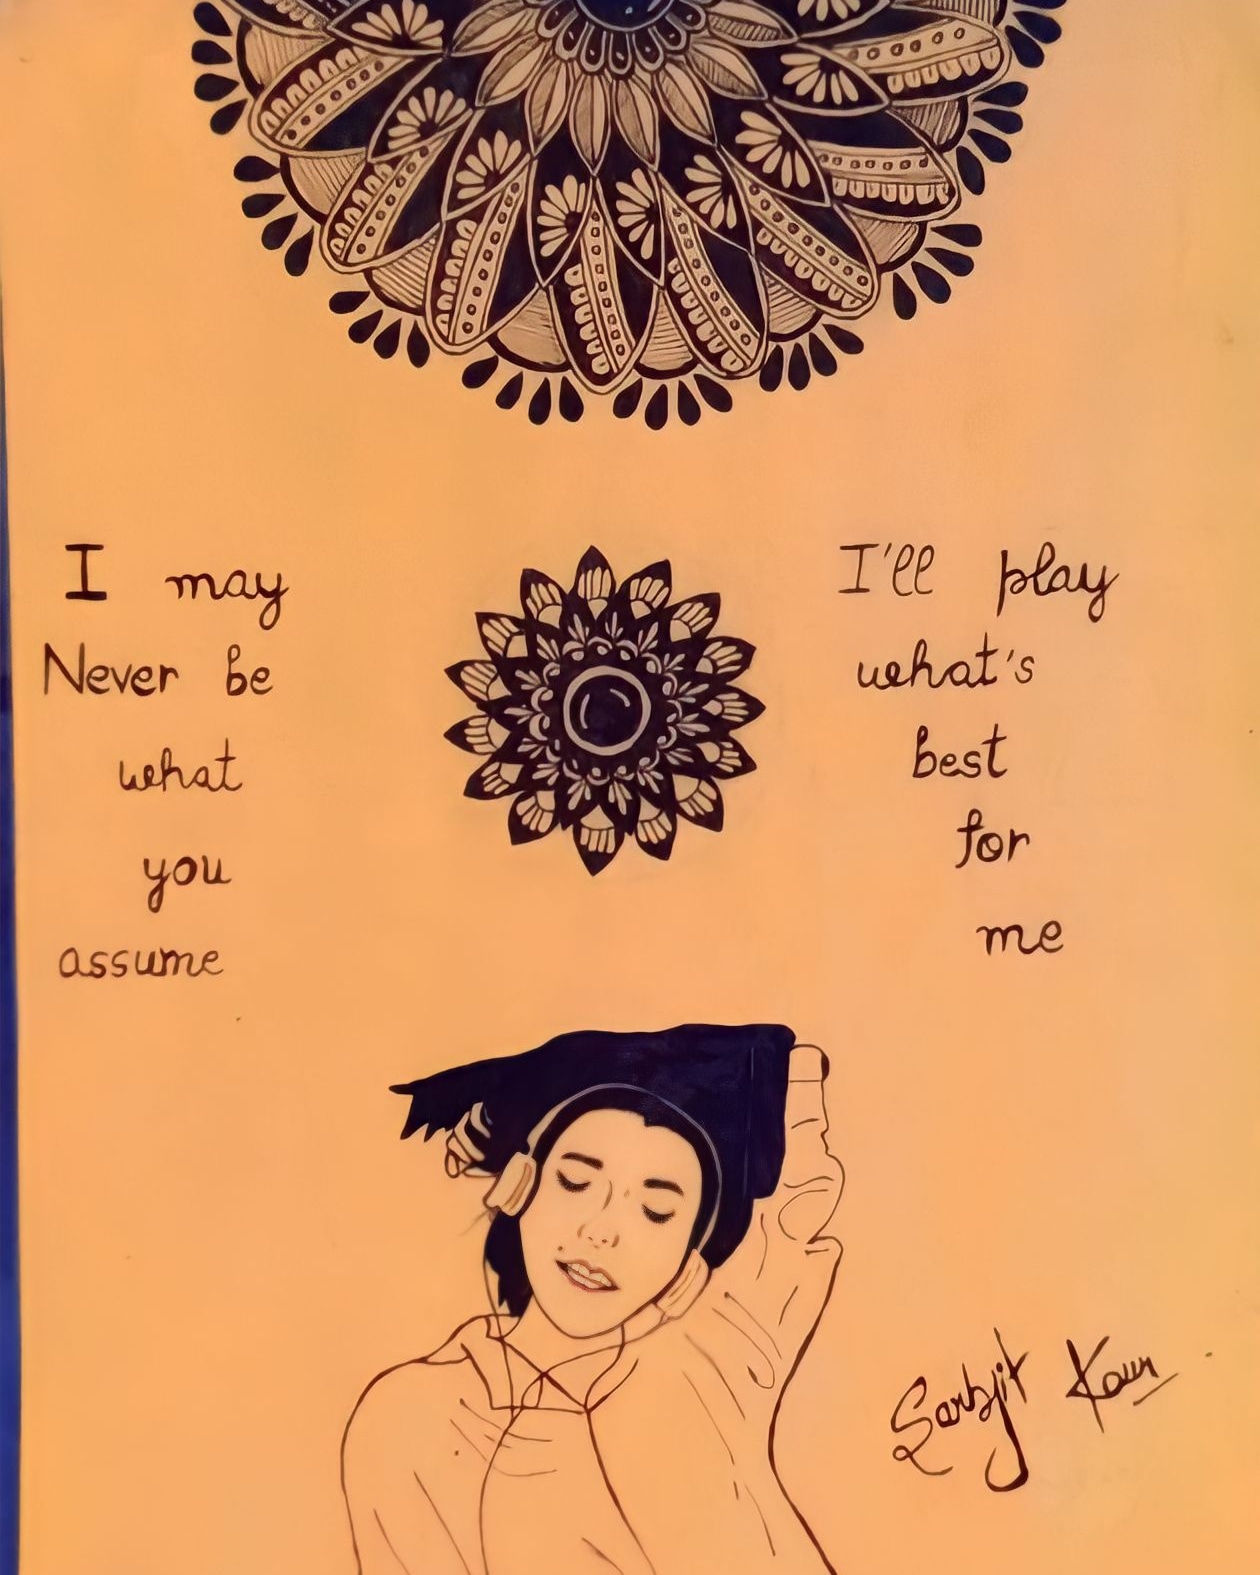 I may
Never be
what
you
assume
I'll play
what's
best
for
me
Sarbjit Kaur